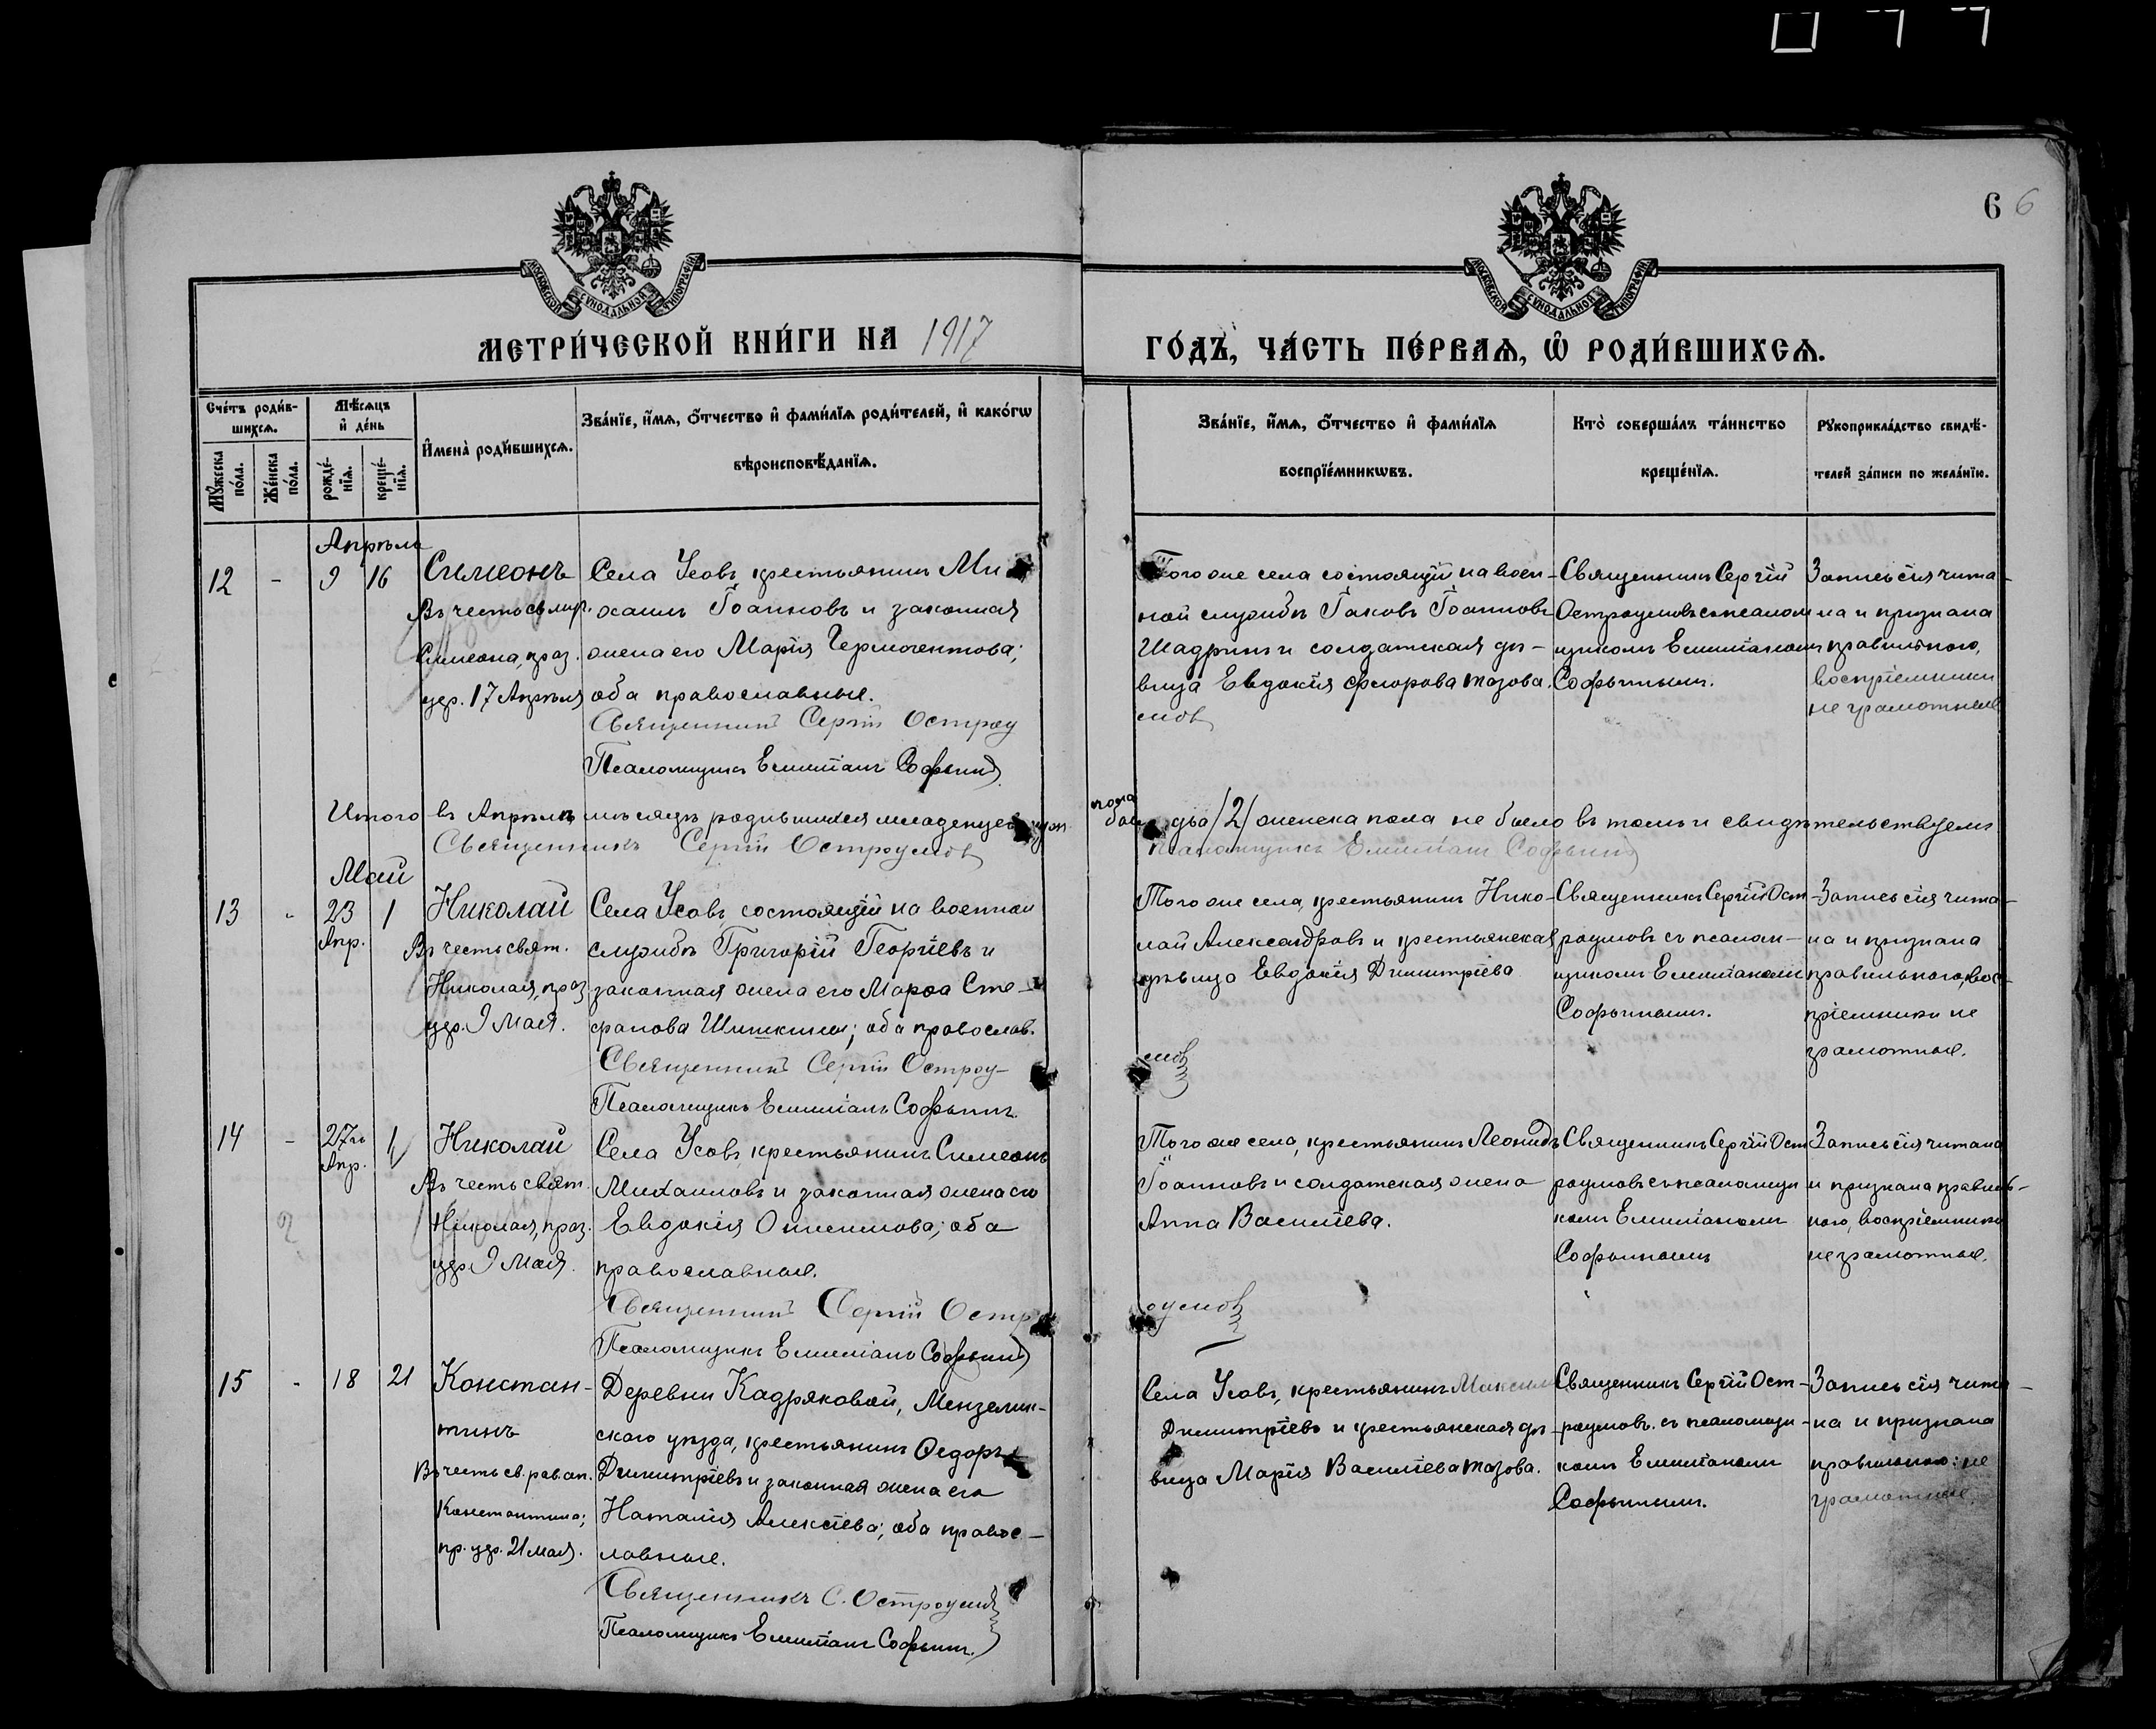 6 6
МОСКОВСКОЙ СѴНОДАЛЬНОЙ ТИПОГРАФІИ
МОСКОВСКОЙ СѴНОДАЛЬНОЙ ТИПОГРАФІИ
МЕТРИ́ЧЕСКОЙ КНИ́ГИ НА 1917
ГО́ДЪ, ЧА́СТЬ ПЕ́РВАѦ, Ѡ҆ РОДИ́ВШИХСѦ.
Сче́тъ роди́в-
шихсѧ.
Мꙋ́жеска по́ла.
Же́нска по́ла.
Мѣ́сѧцъ
и҆ де́нь
рожде́-
нїѧ.
креще́-
нїѧ.
И҆мена̀ роди́вшихсѧ.
Зва́нїе, и҆́мѧ, ѻ҆́тчество и҆ фами́лїѧ роди́телей, и҆ како́гѡ
вѣроисповѣ́данїѧ.
Зва́нїе, и҆́мѧ, ѻ҆́тчество и҆ фами́лїѧ
воспрїе́мникѡвъ.
Кто̀ соверша́лъ та́инство
креще́нїѧ.
Рꙋкоприкла́дство свидѣ́-
телей за́писи по жела́нїю.
Апрѣля
12 - 9 16
Сѵмеонъ
Въ честь св. мир.
Симеона, праз.
удр. 17 Апрѣля
Села Усовъ, крестьянинъ Ми
хаилъ Іоанновъ и законная
жена его Марія Гермогентова;
оба православные.
Священникъ Сергій Остроу
Псаломщикъ Емиліанъ Софьинъ
Того же села состоящій на воен-
ной службѣ Іаковъ Іоанновъ
Шадринъ и солдатская дѣ-
вица Евдокія Флорова Тазова.
мовъ
Священникъ Сергій
Остроумовъ съ псалом
щикомъ Емиліаномъ
Софьинымъ.
Запись сія чита-
на и признана
правильною,
воспріемники
не грамотные
Итого въ Апрѣлѣ мѣсяцѣ родившихся младенцевъ муж
пола было два /2/ женска пола не было въ томъ и свидѣтельствуемъ
Священникъ Сергій Остроумовъ
Псаломщикъ Емиліанъ Софьинъ
Май
13 - 23 1
Апр.
Николай
Въ честь свят.
Николая, праз
удр. 9 Мая.
Села Усовъ, состоящій на военной
службѣ Григорій Георгіевъ и
законная жена его Марѳа Сте-
фанова Шишкины; оба православ.
Священникъ Сергій Остроу-
Псаломщикъ Емиліанъ Софьинъ.
Того же села, крестьянинъ Нико-
лай Александровъ и крестьянская
дѣвица Евдокія Димитріева
мовъ
Священникъ Сергій Ост-
роумовъ съ псалом-
щикомъ Емиліаномъ
Софьинымъ.
Запись сія чита-
на и признана
правильною, вос-
пріемники не
грамотные.
14 - 27го 1
Апр.
Николай
Въ честь свят.
Николая, праз.
удр 9 Мая.
Села Усовъ, крестьянинъ Симеонъ
Михаиловъ и законная жена его
Евдокія Онисимова; оба
православные.
Священникъ Сергій Остр
Псаломщикъ Емиліанъ Софьинъ
Того же села, крестьянинъ Леонидъ
Іоанновъ и солдатская жена
Анна Василіева.
оумовъ
Священникъ Сергій Ост
роумовъ съ псаломщи
комъ Емиліаномъ
Софьинымъ
Запись сія читана
и признана правиль-
ною, воспріемники
не грамотные.
15 - 18 21
Констан-
тинъ
Въ честь св. равоап.
Константина;
пр. удр. 21 мая.
Деревни Кадряковой, Мензелин-
скаго уѣзда, крестьянинъ Ѳедоръ
Димитріевъ и законная жена его
Наталія Алексіева; оба правос-
лавные.
Священникъ С. Остроумовъ
Псаломщикъ Емиліанъ Софьинъ.
Села Усовъ, крестьянинъ Максимъ
Димитріевъ и крестьянская дѣ-
вица Марія Василіева Тазова.
Священникъ Сергій Ост-
роумовъ. съ псаломщи-
комъ Емиліаномъ
Софьинымъ.
Запись сія чита-
на и признана
правильною: не
грамотные.